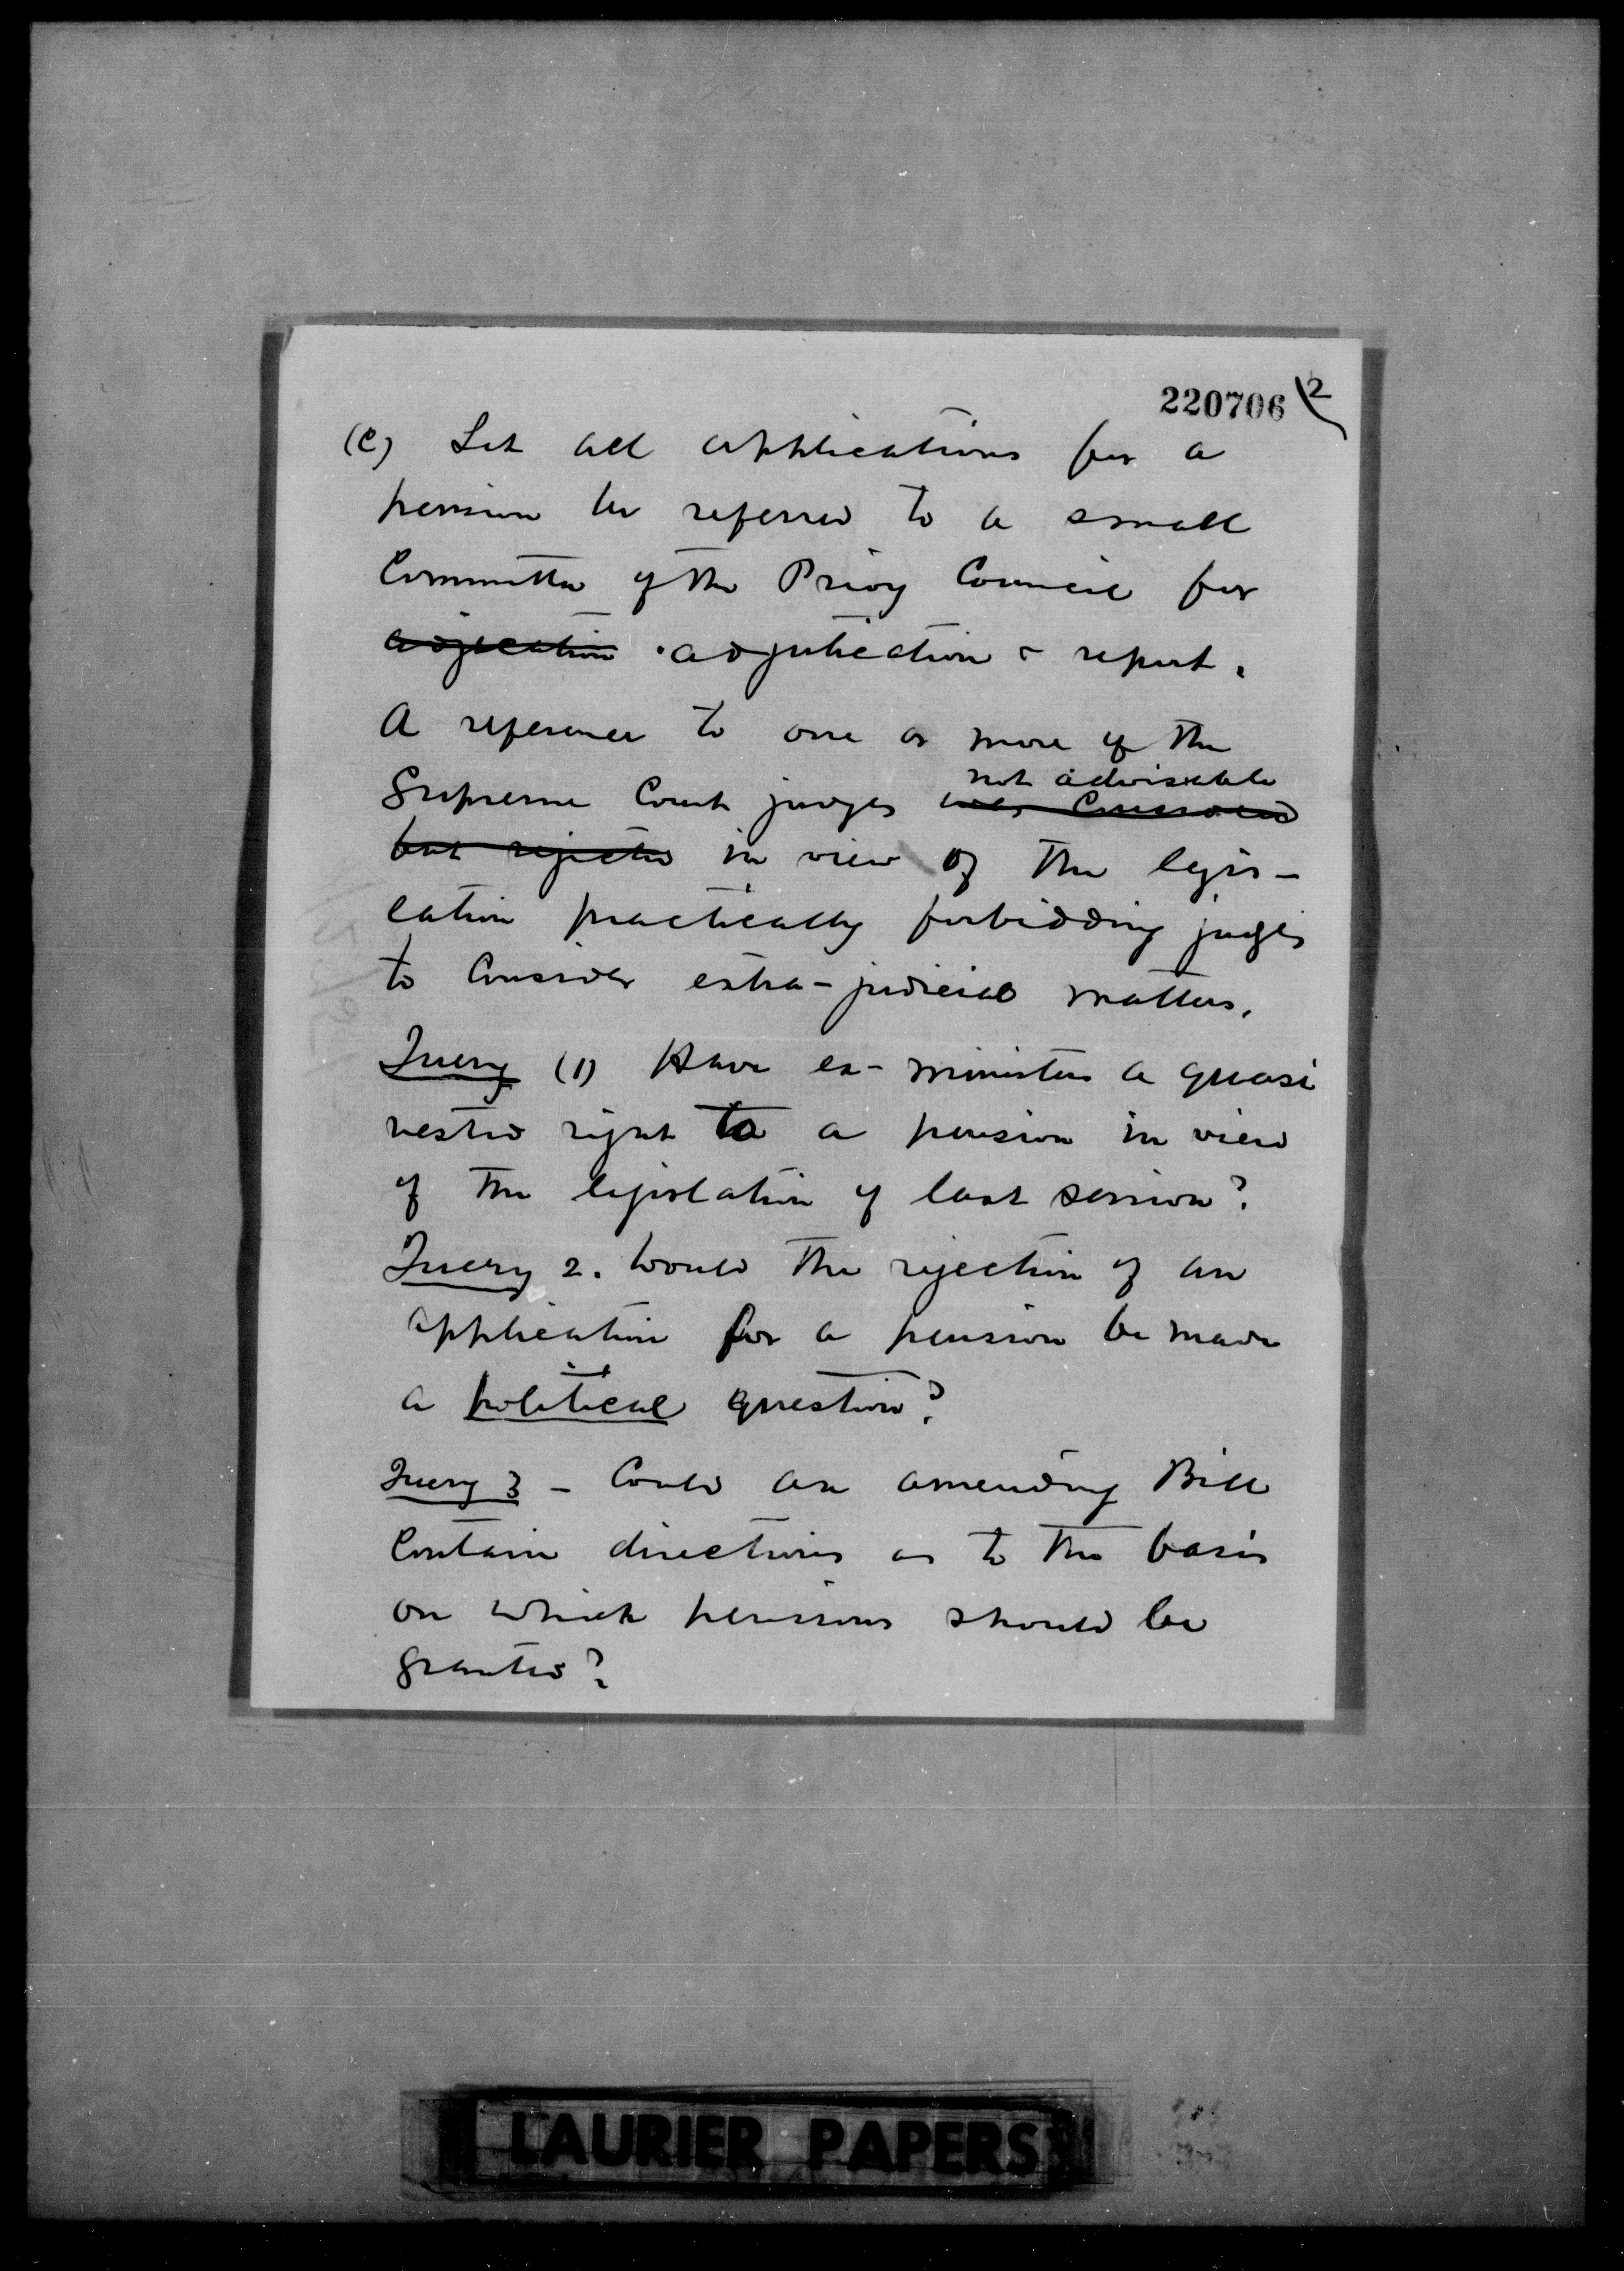 220706 2
(c) Let all applications for a
pension be referred to a small
Committee of the Privy Council for
adjucation adjudication & report.
A reference to one or more of the
not advisable
Supreme Court judges was considered
but rejected in view of the legis-
lation practically forbidding judges
to consider extra-judicial matters.
Query (1) Have ex-ministers a quasi
vested right to a pension in view
of the legislation of last session?
Query 2. Would the rejection of an
application for a pension be made
a political question?
Query 3 - Could an amending Bill
contain directions as to the basis
on which pensions should be
granted?
LAURIER PAPERS